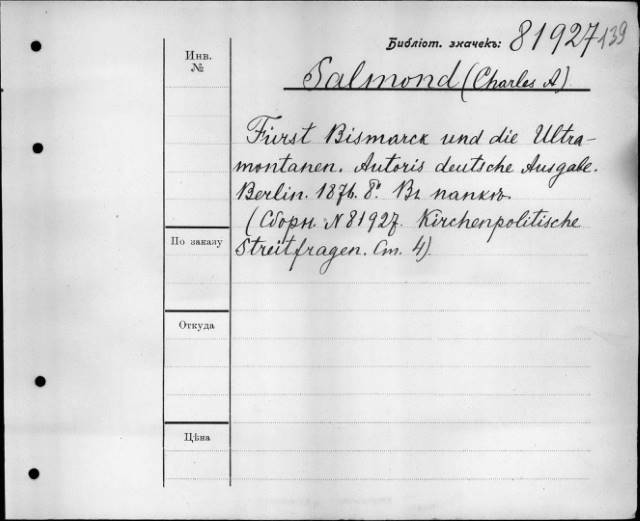 Библіот. значекъ: 81927 139
Инв. №
Salmond (Charles A)
Fürst Bismarck und die Ultra-
montanen. Autoris deutsche Ausgabe.
Berlin. 1876. 8º. Въ папкѣ.
(Сборн. N 81927. Kirchenpolitische
Streitfragen. Ст. 4).
По заказу
Откуда
Цѣна